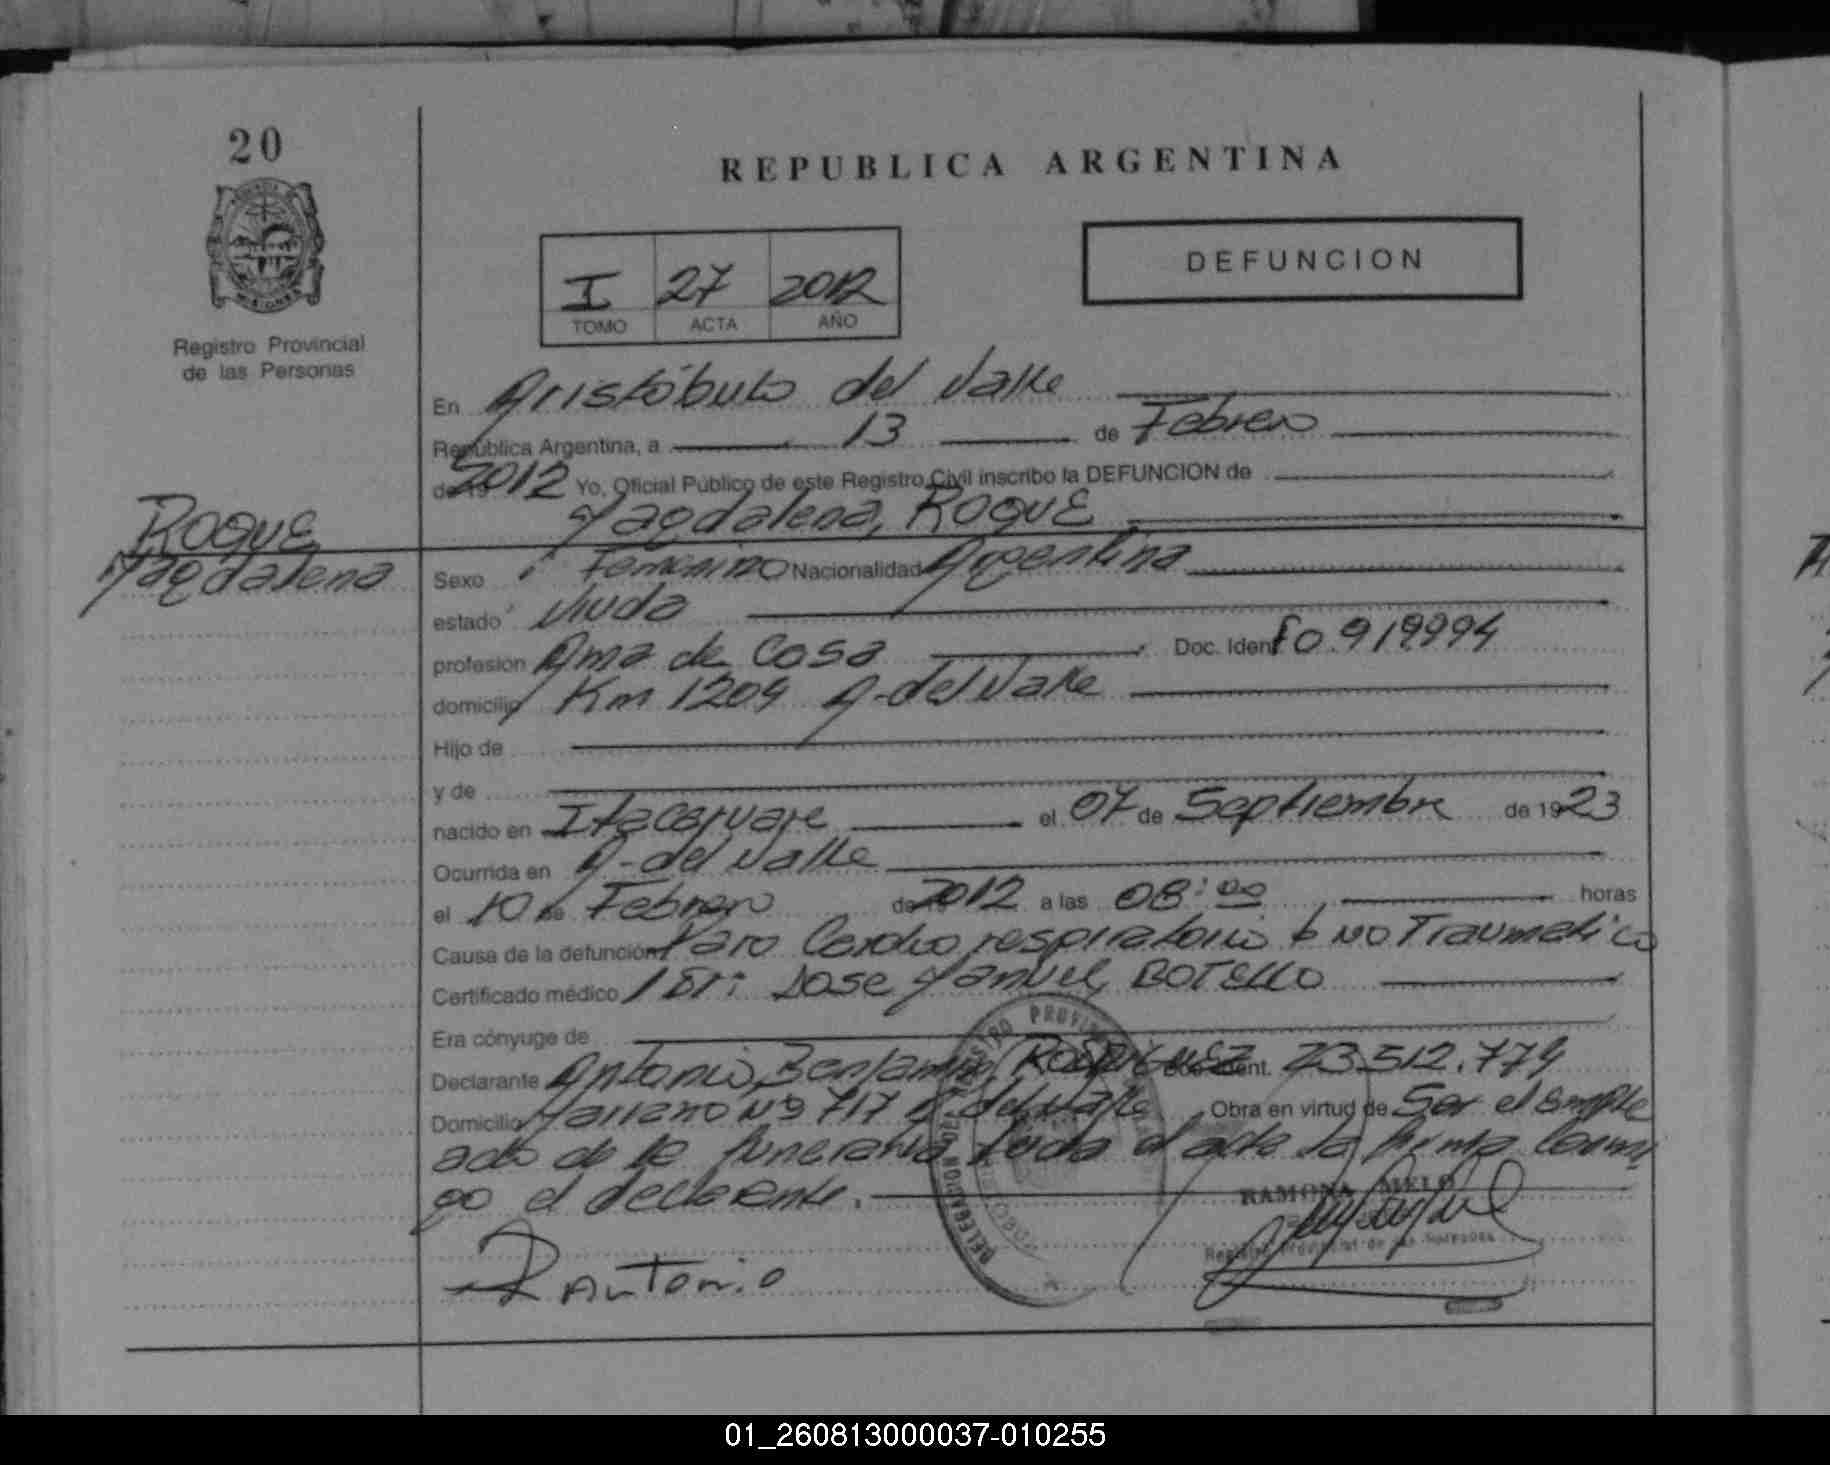 20
REPUBLICA ARGENTINA
DEFUNCION
I 27 2012
TOMO ACTA AÑO
Registro Provincial
de las Personas
MISIONES
En Aristóbulo del Valle
República Argentina, a 13 de Febrero
de 19 2012 Yo, Oficial Público de este Registro Civil inscribo la DEFUNCION de
Magdalena, ROQUE
ROQUE
Magdalena
Sexo Femenino Nacionalidad Argentina
estado Viuda
profesión Ama de Casa Doc. Ident F0.919994
domicilio Km 1204 A-del Valle
Hijo de
y de
nacido en Itacaruare el 07 de Septiembre de 1923
Ocurrida en A-del Valle
el 10 de Febrero de 19 2012 a las 08:00 horas
Causa de la defunción Paro Cardio respiratorio NO Traumatico
Certificado médico Dr: Jose Manuel, BOTELLO
Era cónyuge de
Declarante Antonio, Benjamin, RODRIGUEZ Doc. Ident. 23.512.774
Domicilio Mariano Nº 717 A del Valle Obra en virtud de Ser el emple
ado de la funeraria leida el acta la firma conmi
go el declarente.
RAMONA MELO
Registro Provincial de las Personas
R Antonio
DELEGACION DEL REGISTRO PROVIN
01_260813000037-010255